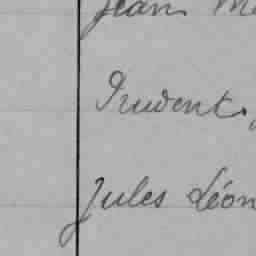 Jean
Prudent,
Jules Léon